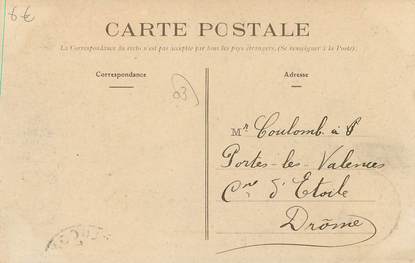 6€
CARTE POSTALE
La Correspondance du recto n'est pas acceptée par tous les pays étrangers. (Se renseigner à la Poste).
Correspondance
Adresse
03
Mr Coulomb à P
Portes-les-Valences
Cne d'Etoile
Drôme